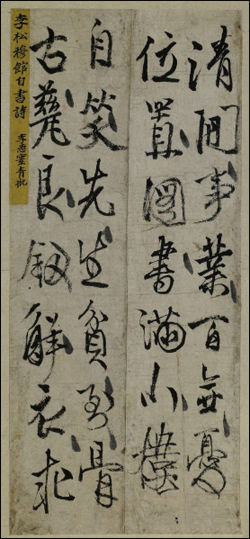 清閒事業百無憂
位置圖書滿小樓
自笑先生貧到骨
古彝良釼解衣求
李松穆館自書詩 李惠寰青批